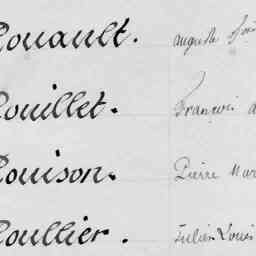 Rouault. Auguste
Rouillet. François
Rouison. Pierre Mar
Roullier. Julien Louis